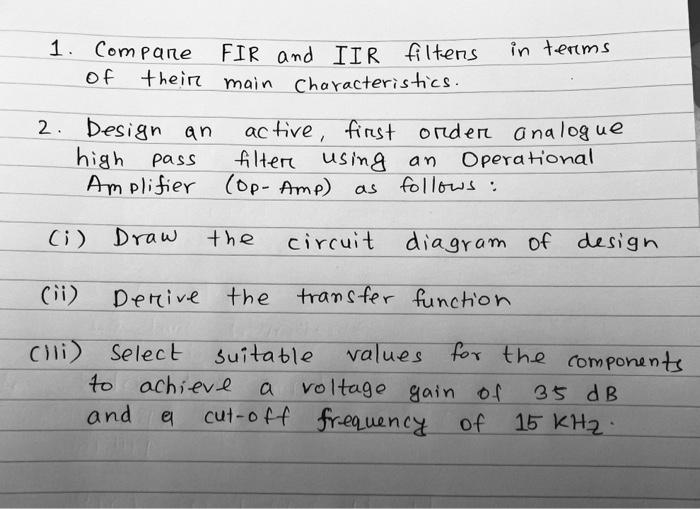 1. Compare FIR and IIR filters in terms
of their main characteristics.
2. Design an active, first order analogue
high pass filter using an Operational
Amplifier (Op-Amp) as follows:
(i) Draw the circuit diagram of design
(ii) Derive the transfer function
(iii) Select suitable values for the components
to achieve a voltage gain of 35 dB
and a cut-off frequency of 15 KHz.